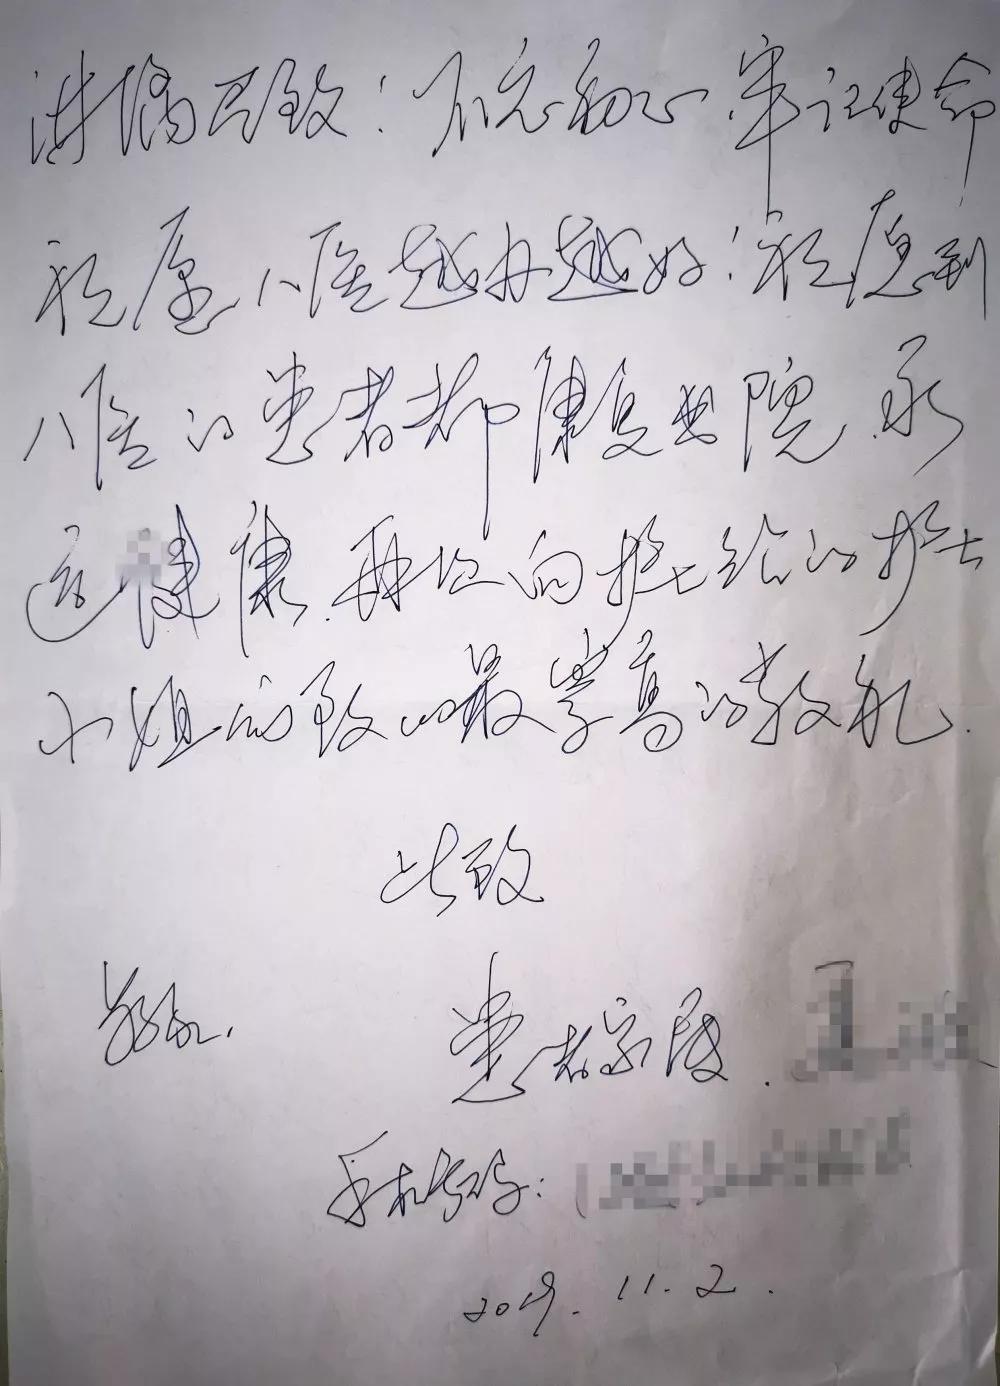 讲偏已致！不忘初心牢记使命
祝愿八医越办越好！祝愿到
八医的患者都康复出院.永
远健康.再次向护士给的护士
小姐们致以最崇高的敬礼.
此致
敬礼.
患者家属.
手机号码:
2019.11.2.